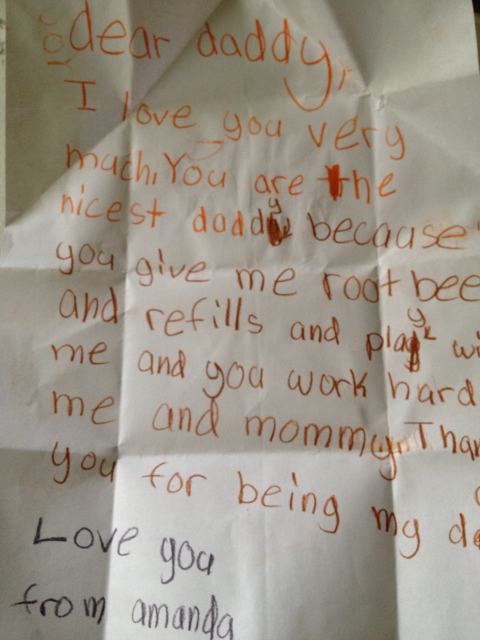 dear daddy,
I love you very
much, You are the
nicest daddy because
you give me root bee
and refills and play wi
me and you work hard
me and mommy. Than
you for being my da
Love you
from amanda